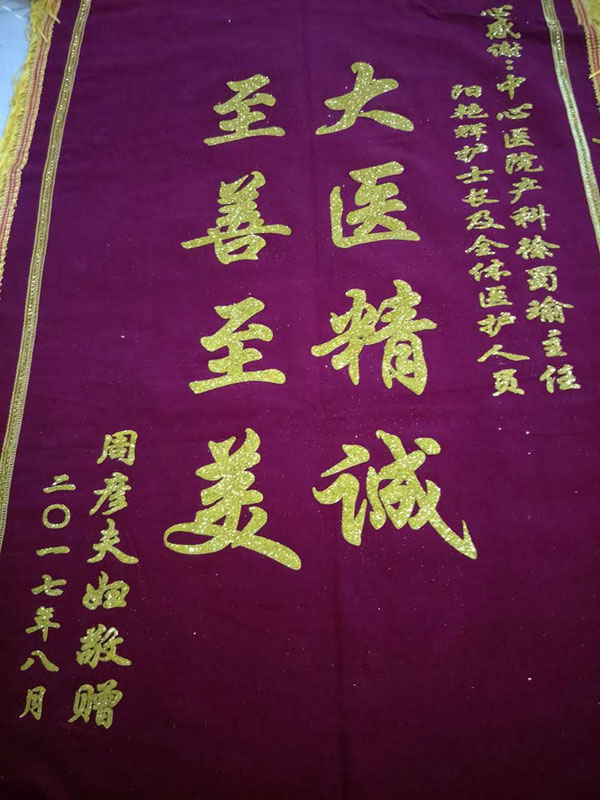 心感谢：中心医院产科徐蜀瑜主任
阳艳辉护士长及全体医护人员
大医精诚
至善至美
周彦夫妇敬赠
二〇一七年八月